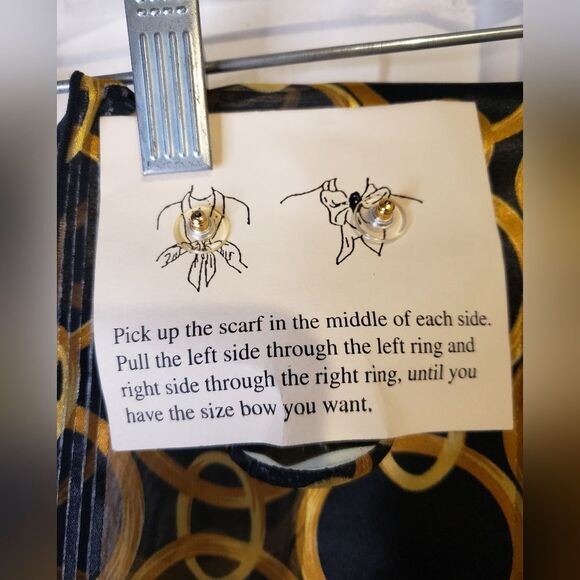 Pick up the scarf in the middle of each side.
Pull the left side through the left ring and
right side through the right ring, until you
have the size bow you want.